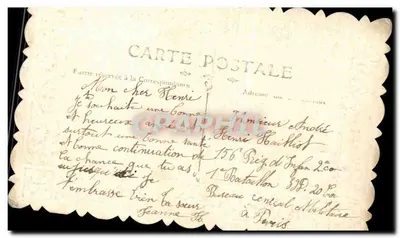 CARTE POSTALE
Partie réservée à la Correspondance
Adresse
Mon cher Henri
Je te souhaite une bonne
et heureuse année
surtout une bonne santé
et bonne continuation de
la chance que tu as
jusqu'ici je
t'embrasse bien ta sœur
Jeanne
Monsieur André
Henri
156 Rég d'Infan 2e
1er Bataillon 20
Bureau central Militaire
à Paris
CPAPHIL